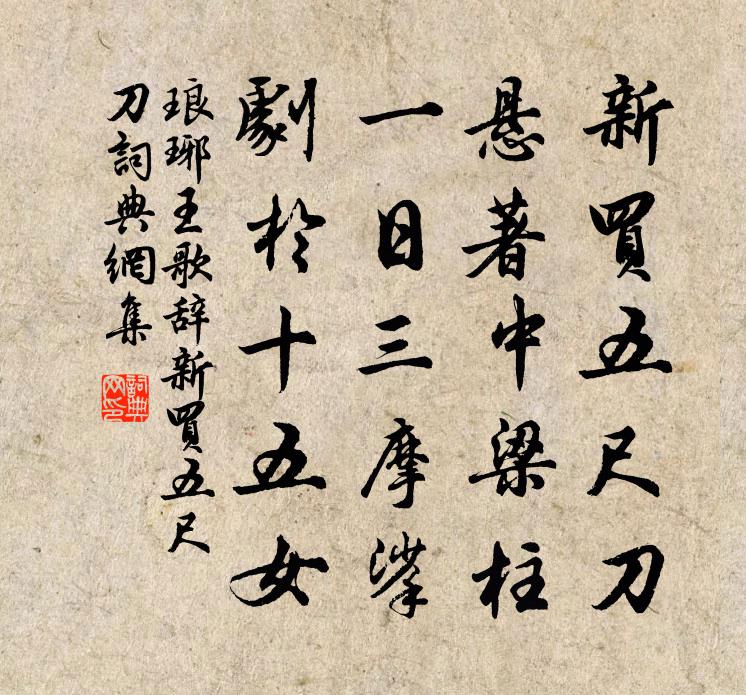 新買五尺刀
悬著中梁柱
一日三摩挲
劇於十五女
琅琊王歌辞新買五尺
刀詞典網集
詞典网印